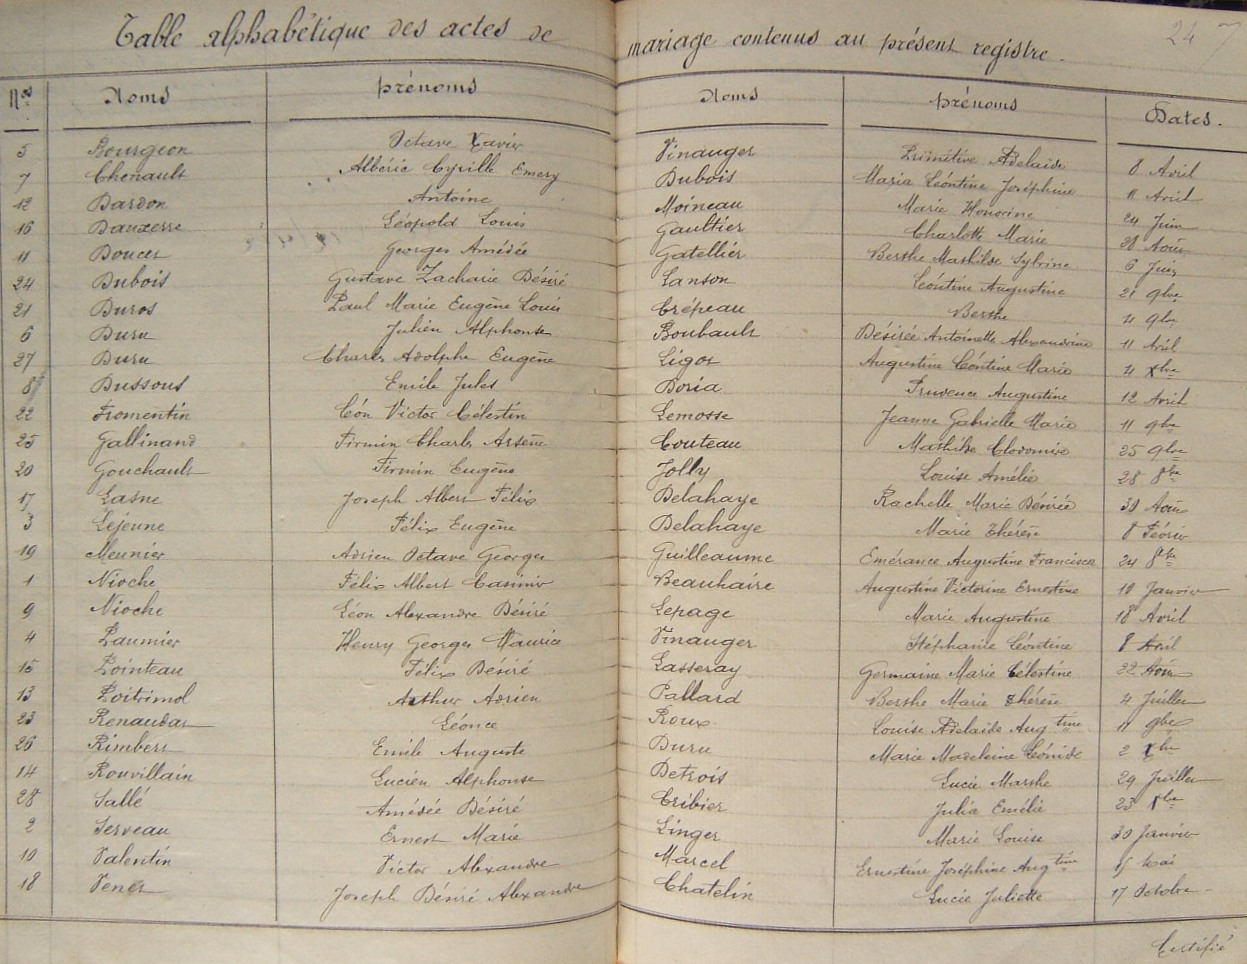 Table alphabétique des actes de mariage contenus au présent registre.
247
Nos Noms prénoms Noms prénoms Dates.
5 Bourgeon Octave Xavier Vinauger Primitive Adelaïde 8 Avril
7 Chenault Albéric Cyrille Emery Dubois Maria Léontine Joséphine 11 Avril
12 Dardon Antoine Moineau Marie Honorine 24 Juin
16 Dauxerre Léopold Louis Gaultier Charlotte Marie 28 Août
11 Doucet Georges Amédée Gatellier Berthe Mathilde Sylvine 6 Juin
24 Dubois Gustave Zacharie Désiré Lanson Léontine Augustine 21 9bre
21 Duros Paul Marie Eugène Louis Crépeau Berthe 4 9bre
6 Duru Julien Alphonse Boubault Désirée Antoinette Alexandrine 11 Avril
27 Duru Charles Adolphe Eugène Ligot Augustine Léontine Marie 4 Xbre
8 Dussous Emile Jules Doria Prudence Augustine 12 Avril
22 Fromentin Léon Victor Célestin Lemosse Jeanne Gabrielle Marie 11 9bre
25 Gallinand Firmin Charles Arsène Couteau Mathilde Clodomire 25 9bre
20 Gouchault Firmin Eugène Jolly Louise Amélie 28 8bre
17 Lasne Joseph Albert Félix Delahaye Rachelle Marie Désirée 30 Août
3 Lejeune Félix Eugène Delahaye Marie Thérèse 8 Février
19 Meunier Adrien Octave Georges Guilleaume Emérance Augustine Francisca 24 8bre
1 Nioche Félix Albert Casimir Beauhaire Augustine Victorine Ernestine 10 Janvier
9 Nioche Léon Alexandre Désiré Lepage Marie Augustine 18 Avril
4 Paumier Henry Georges Maurice Vinauger Stéphanie Léontine 8 Avril
15 Pointeau Félix Désiré Lasseray Germaine Marie Célestine 22 Août
13 Poitrimol Arthur Adrien Pallard Berthe Marie Thérèse 4 Juillet
23 Renaudat Léonce Roux Louise Adelaïde Augtine 11 9bre
26 Rimbert Emile Auguste Duru Marie Madeleine Léonide 2 Xbre
14 Rouvillain Lucien Alphonse Detrois Lucie Marthe 29 Juillet
28 Sallé Amédée Désiré Cribier Julia Emélie 23 Xbre
2 Serveau Ernest Marie Linger Marie Louise 30 Janvier
10 Valentin Victor Alexandre Marcel Ernestine Joséphine Augtine Mai
18 Venet Joseph Désiré Alexandre Chatelin Lucie Juliette 17 Octobre
Certifié